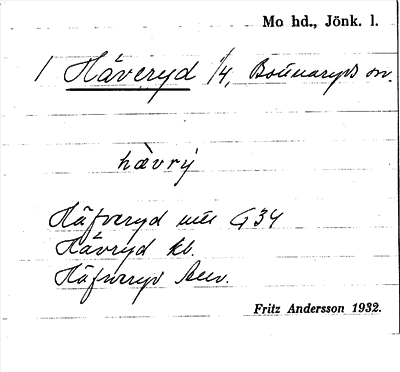 Mo hd., Jönk. l.
1 Häveryd 1/4, Bottnaryds sn.
hàvrý
Häfveryd GS4
Hävryd kb.
Häfveryd
Fritz Andersson 1932.